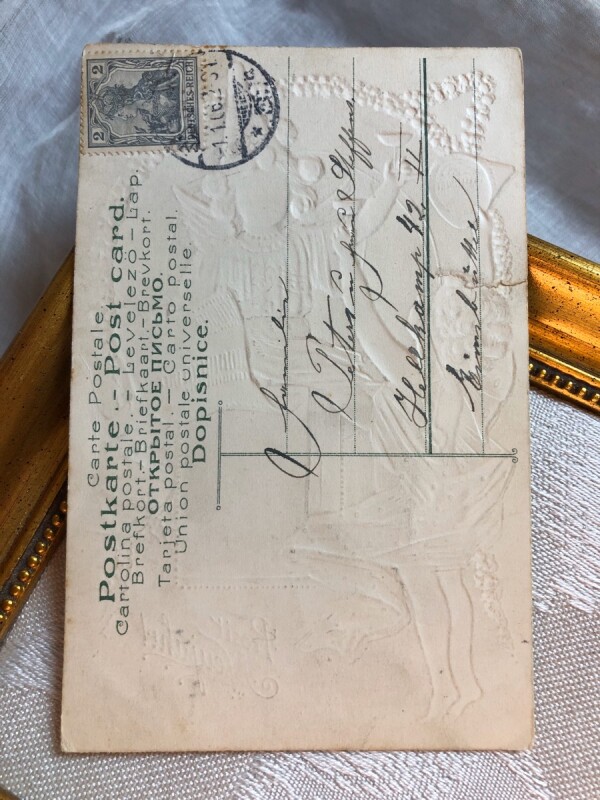 Carte Postale.
Postkarte. - Post card.
Cartolina postale. - Levelező - Lap.
Brefkort. - Briefkaart. - Brevkort.
ОТКРЫТОЕ ПИСЬМО.
Tarjeta postal. - Carto postal.
Union postale universelle.
Dopisnice.
2 DEUTSCHES REICH 2
Familie
Petersen
Hellkamp 42. II
Eimsbüttel